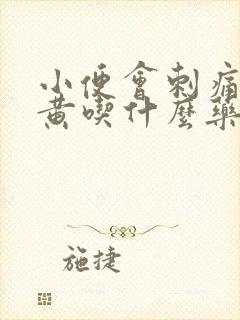 小便會刺痛
黃喫什麼藥
施捷